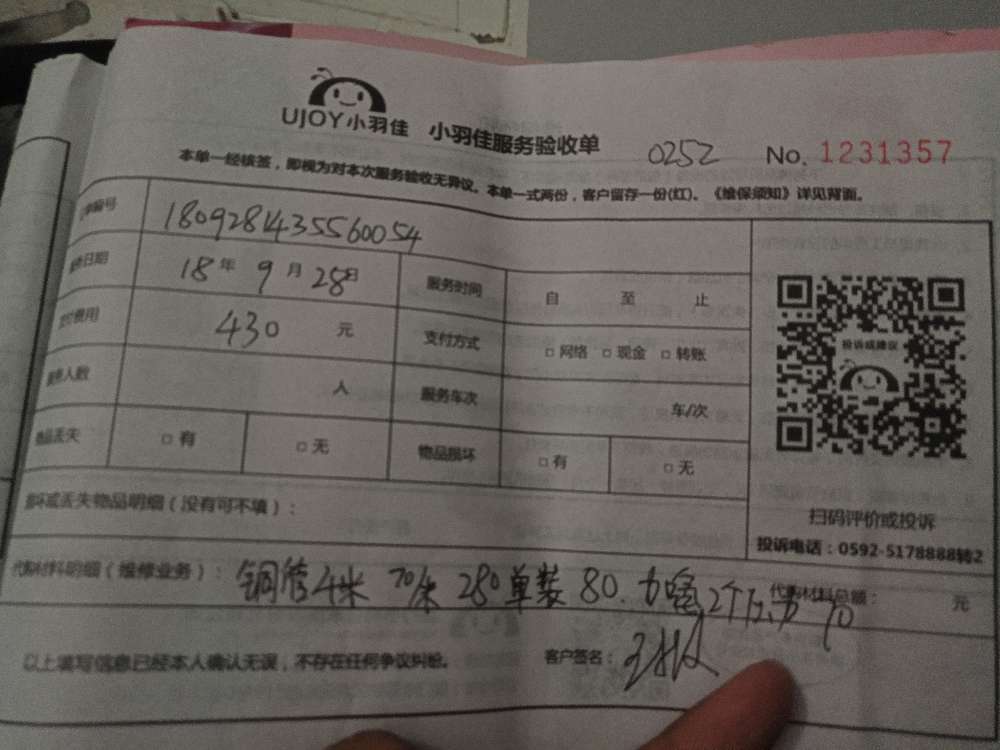 UJOY小羽佳 小羽佳服务验收单 0252 No. 1231357
本单一经核签，即视为对本次服务验收无异议。本单一式两份，客户留存一份(红)。《维保须知》详见背面。
编号 1809281435560054
日期 18年9月28日 服务时间 自 至 止
费用 430 元 支付方式 □网络 □现金 □转账
人数 人 服务车次 车/次
物品丢失 □有 □无 物品损坏 □有 □无
投诉或建议
扫码评价或投诉
投诉电话：0592-5178888转2
损坏或丢失物品明细（没有可不填）：
代购材料明细（维修业务）： 铜管4米 70/米 280单装 80. 加 2个 70
代购材料总额： 元
以上填写信息已经本人确认无误，不存在任何争议纠纷。 客户签名：